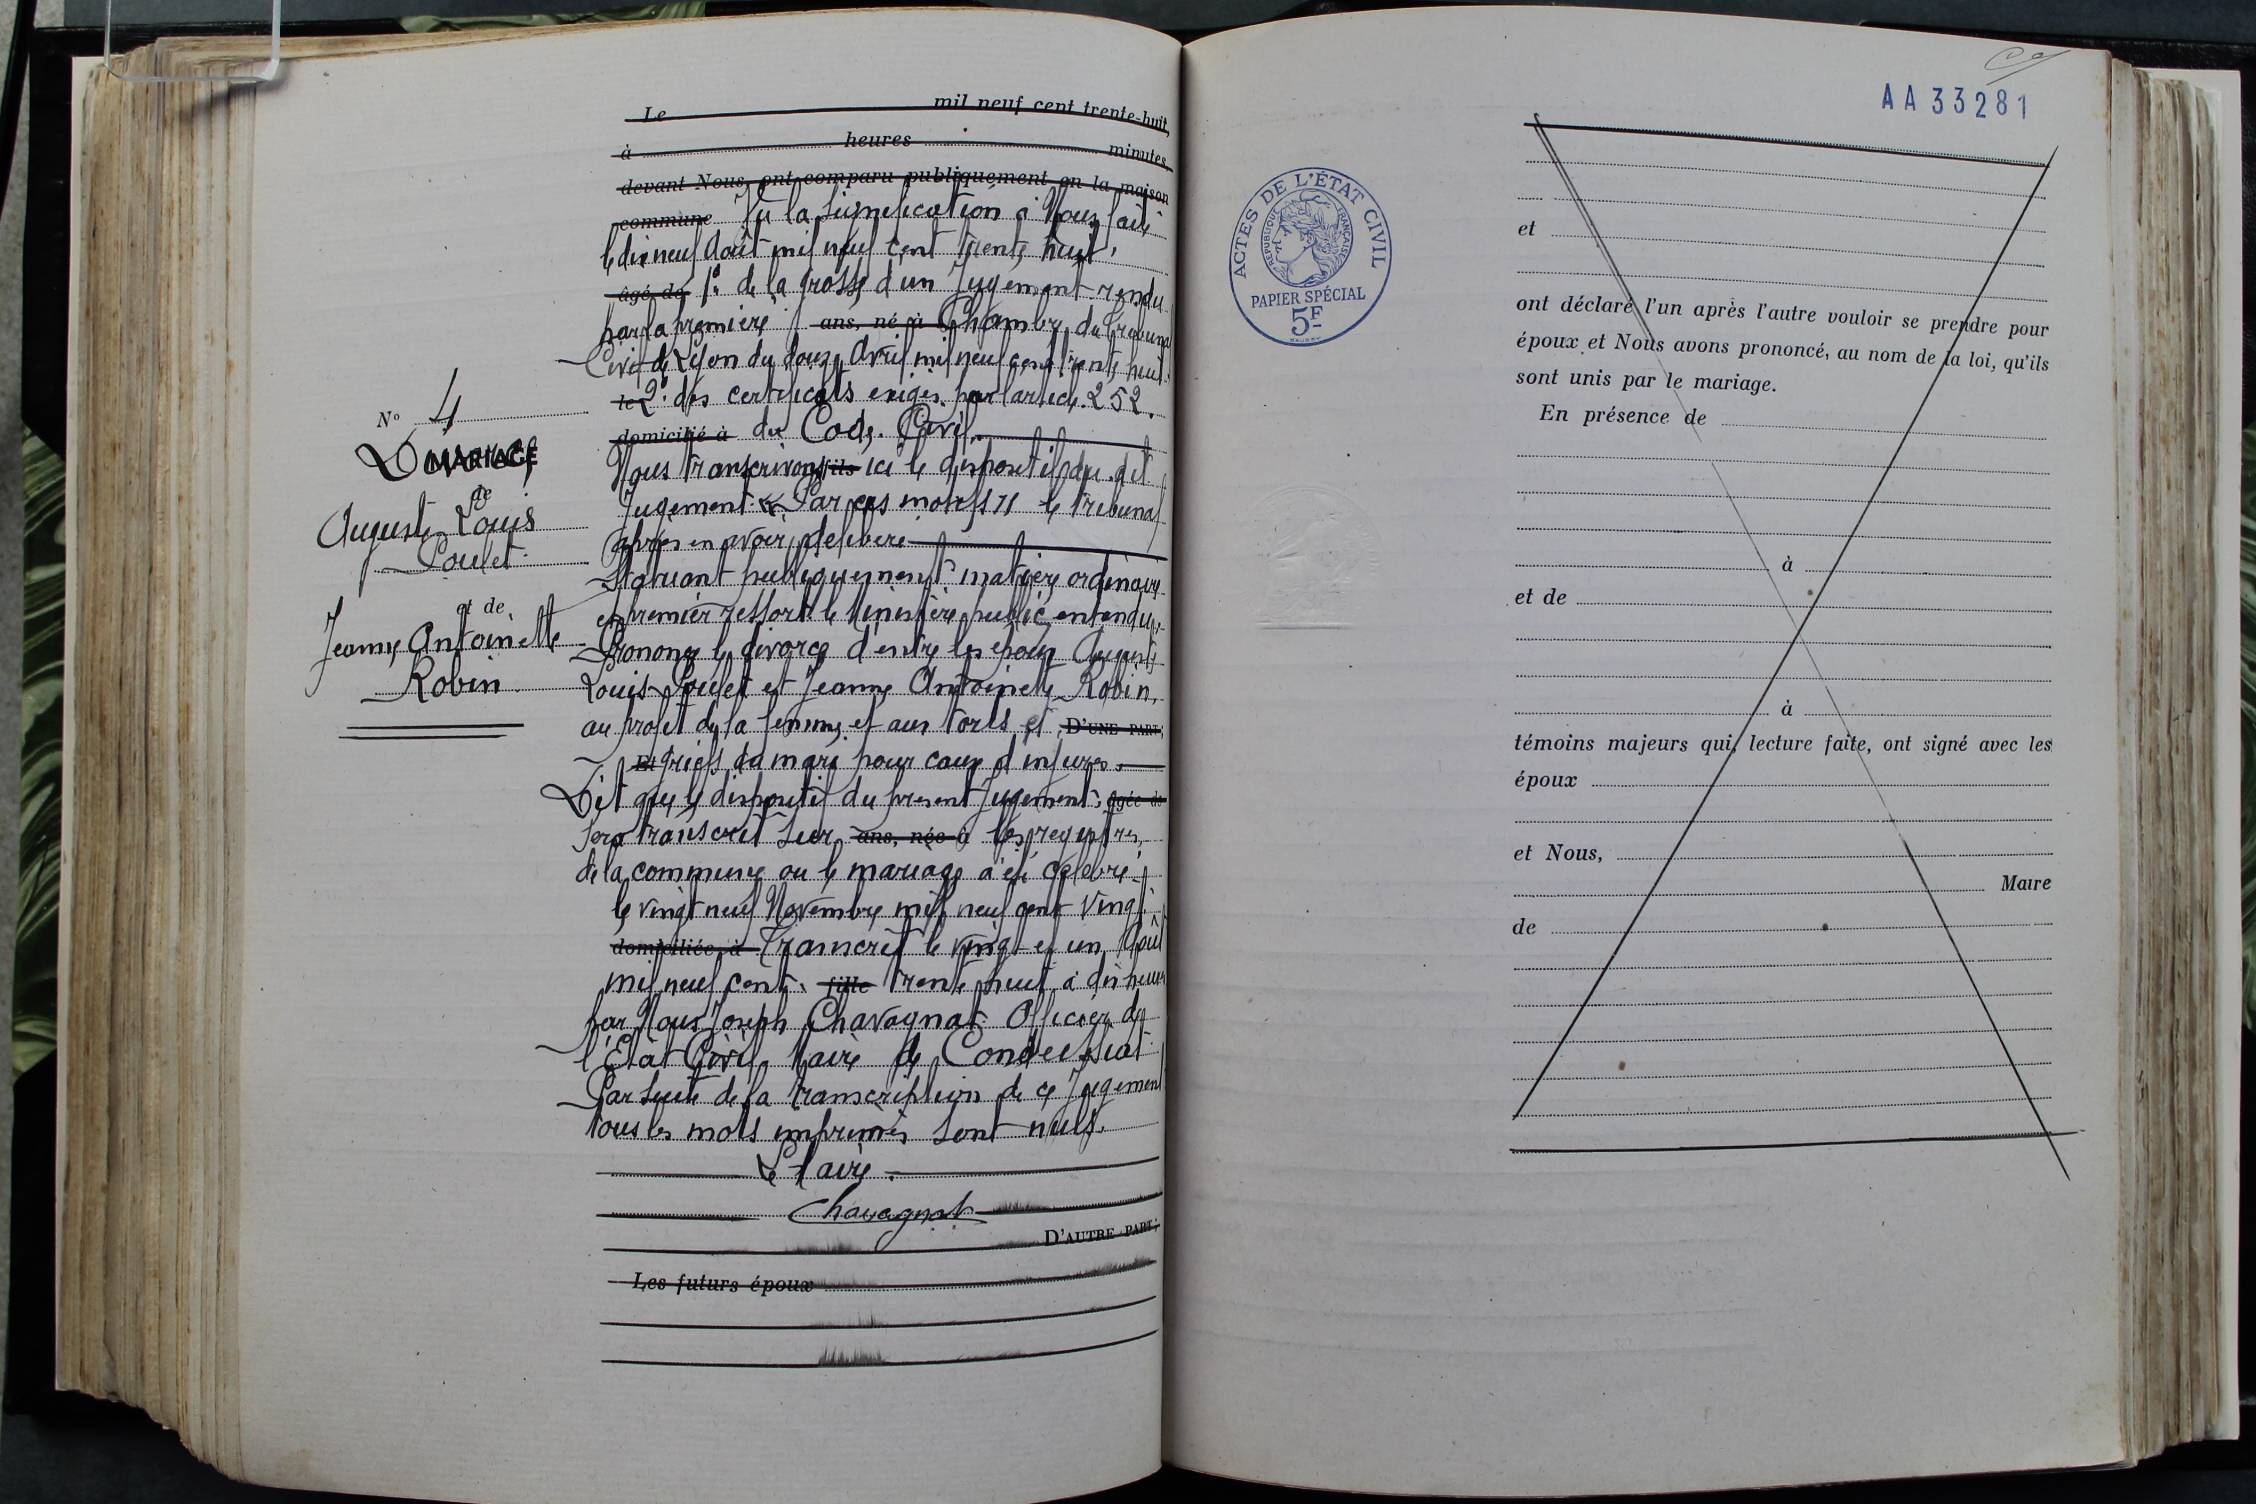 Le mil neuf cent trente-huit,
à heures minutes,
devant Nous, ont comparu publiquement en la maison
commune Vu la signification à Nous faite
le dix neuf Août mil neuf cent trente huit,
âgé de 1° de la grosse d'un Jugement rendu
par la première ans, né à Chambre du Tribunal
Civil de Lyon du douze Avril mil neuf cent trente huit
le 2° des certificats exigés par l'article 252.
domicilié à du Code Civil.
Nous transcrivons fils ici le dispositif du dit
Jugement « Par ces motifs » le Tribunal
après en avoir délibéré
Statuant publiquement matière ordinaire
et premier ressort le Ministère public entendu,
Prononce le divorce d'entre les époux Auguste
Louis Poulet et Jeanne Antoinette Robin,
au profit de la femme et aux torts et D'UNE PART;
Et griefs du mari pour cause d'injures.
Dit que le dispositif du présent Jugement âgée de
sera transcrit sur ans, née à les registres
de la commune ou le mariage a été célébré
le vingt neuf Novembre mil neuf cent vingt.
domiciliée à Transcrit le vingt et un Août
mil neuf cent fille trente huit à dix heures
par Nous Joseph Chavagnat Officier de
l'Etat Civil, Maire de Condeissiat
Par suite de la transcription de ce Jugement
tous les mots imprimés sont nuls.
Le Maire.
Chavagnat
D'AUTRE PART;
Les futurs époux
N° 4
DIVORCE
MARIAGE
de
Auguste Louis
Poulet
et de
Jeanne Antoinette
Robin
AA 33281
ACTES DE L'ÉTAT CIVIL
RÉPUBLIQUE FRANÇAISE
PAPIER SPÉCIAL
5F
et
ont déclaré l'un après l'autre vouloir se prendre pour
époux et Nous avons prononcé, au nom de la loi, qu'ils
sont unis par le mariage.
En présence de
à
et de
à
témoins majeurs qui, lecture faite, ont signé avec les
époux
et Nous,
Maire
de